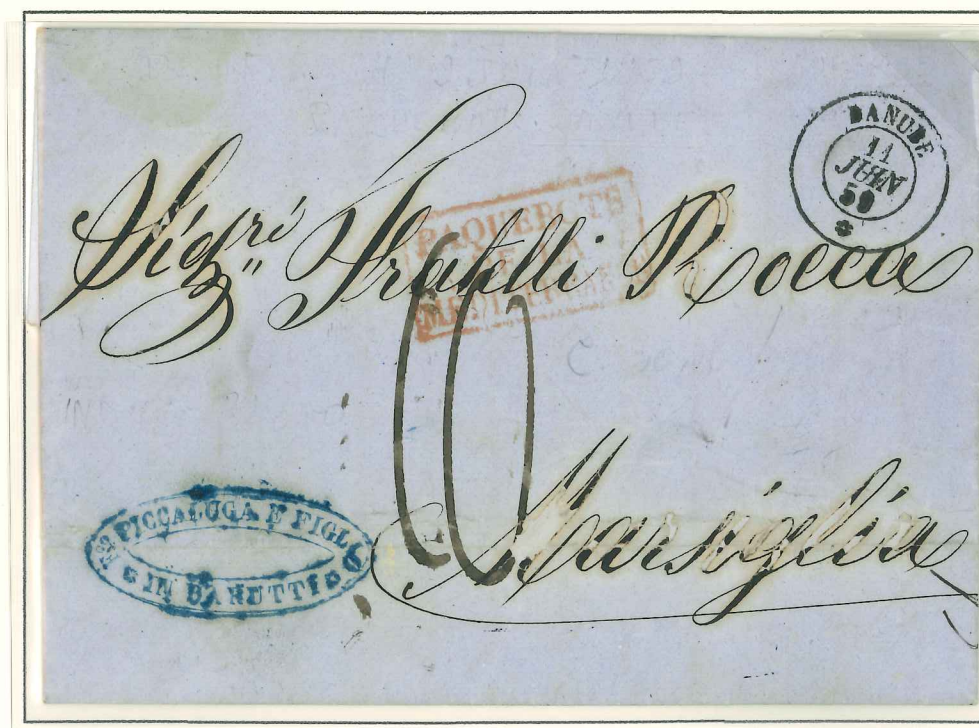 DANUBE
11
JUIN
59
Sig.ri Fratelli Rocca
PAQUEBOTS
DE LA
MEDITERRANEE
6
Marsiglia
PICCALUGA E FIGLIO
IN BARUTTI